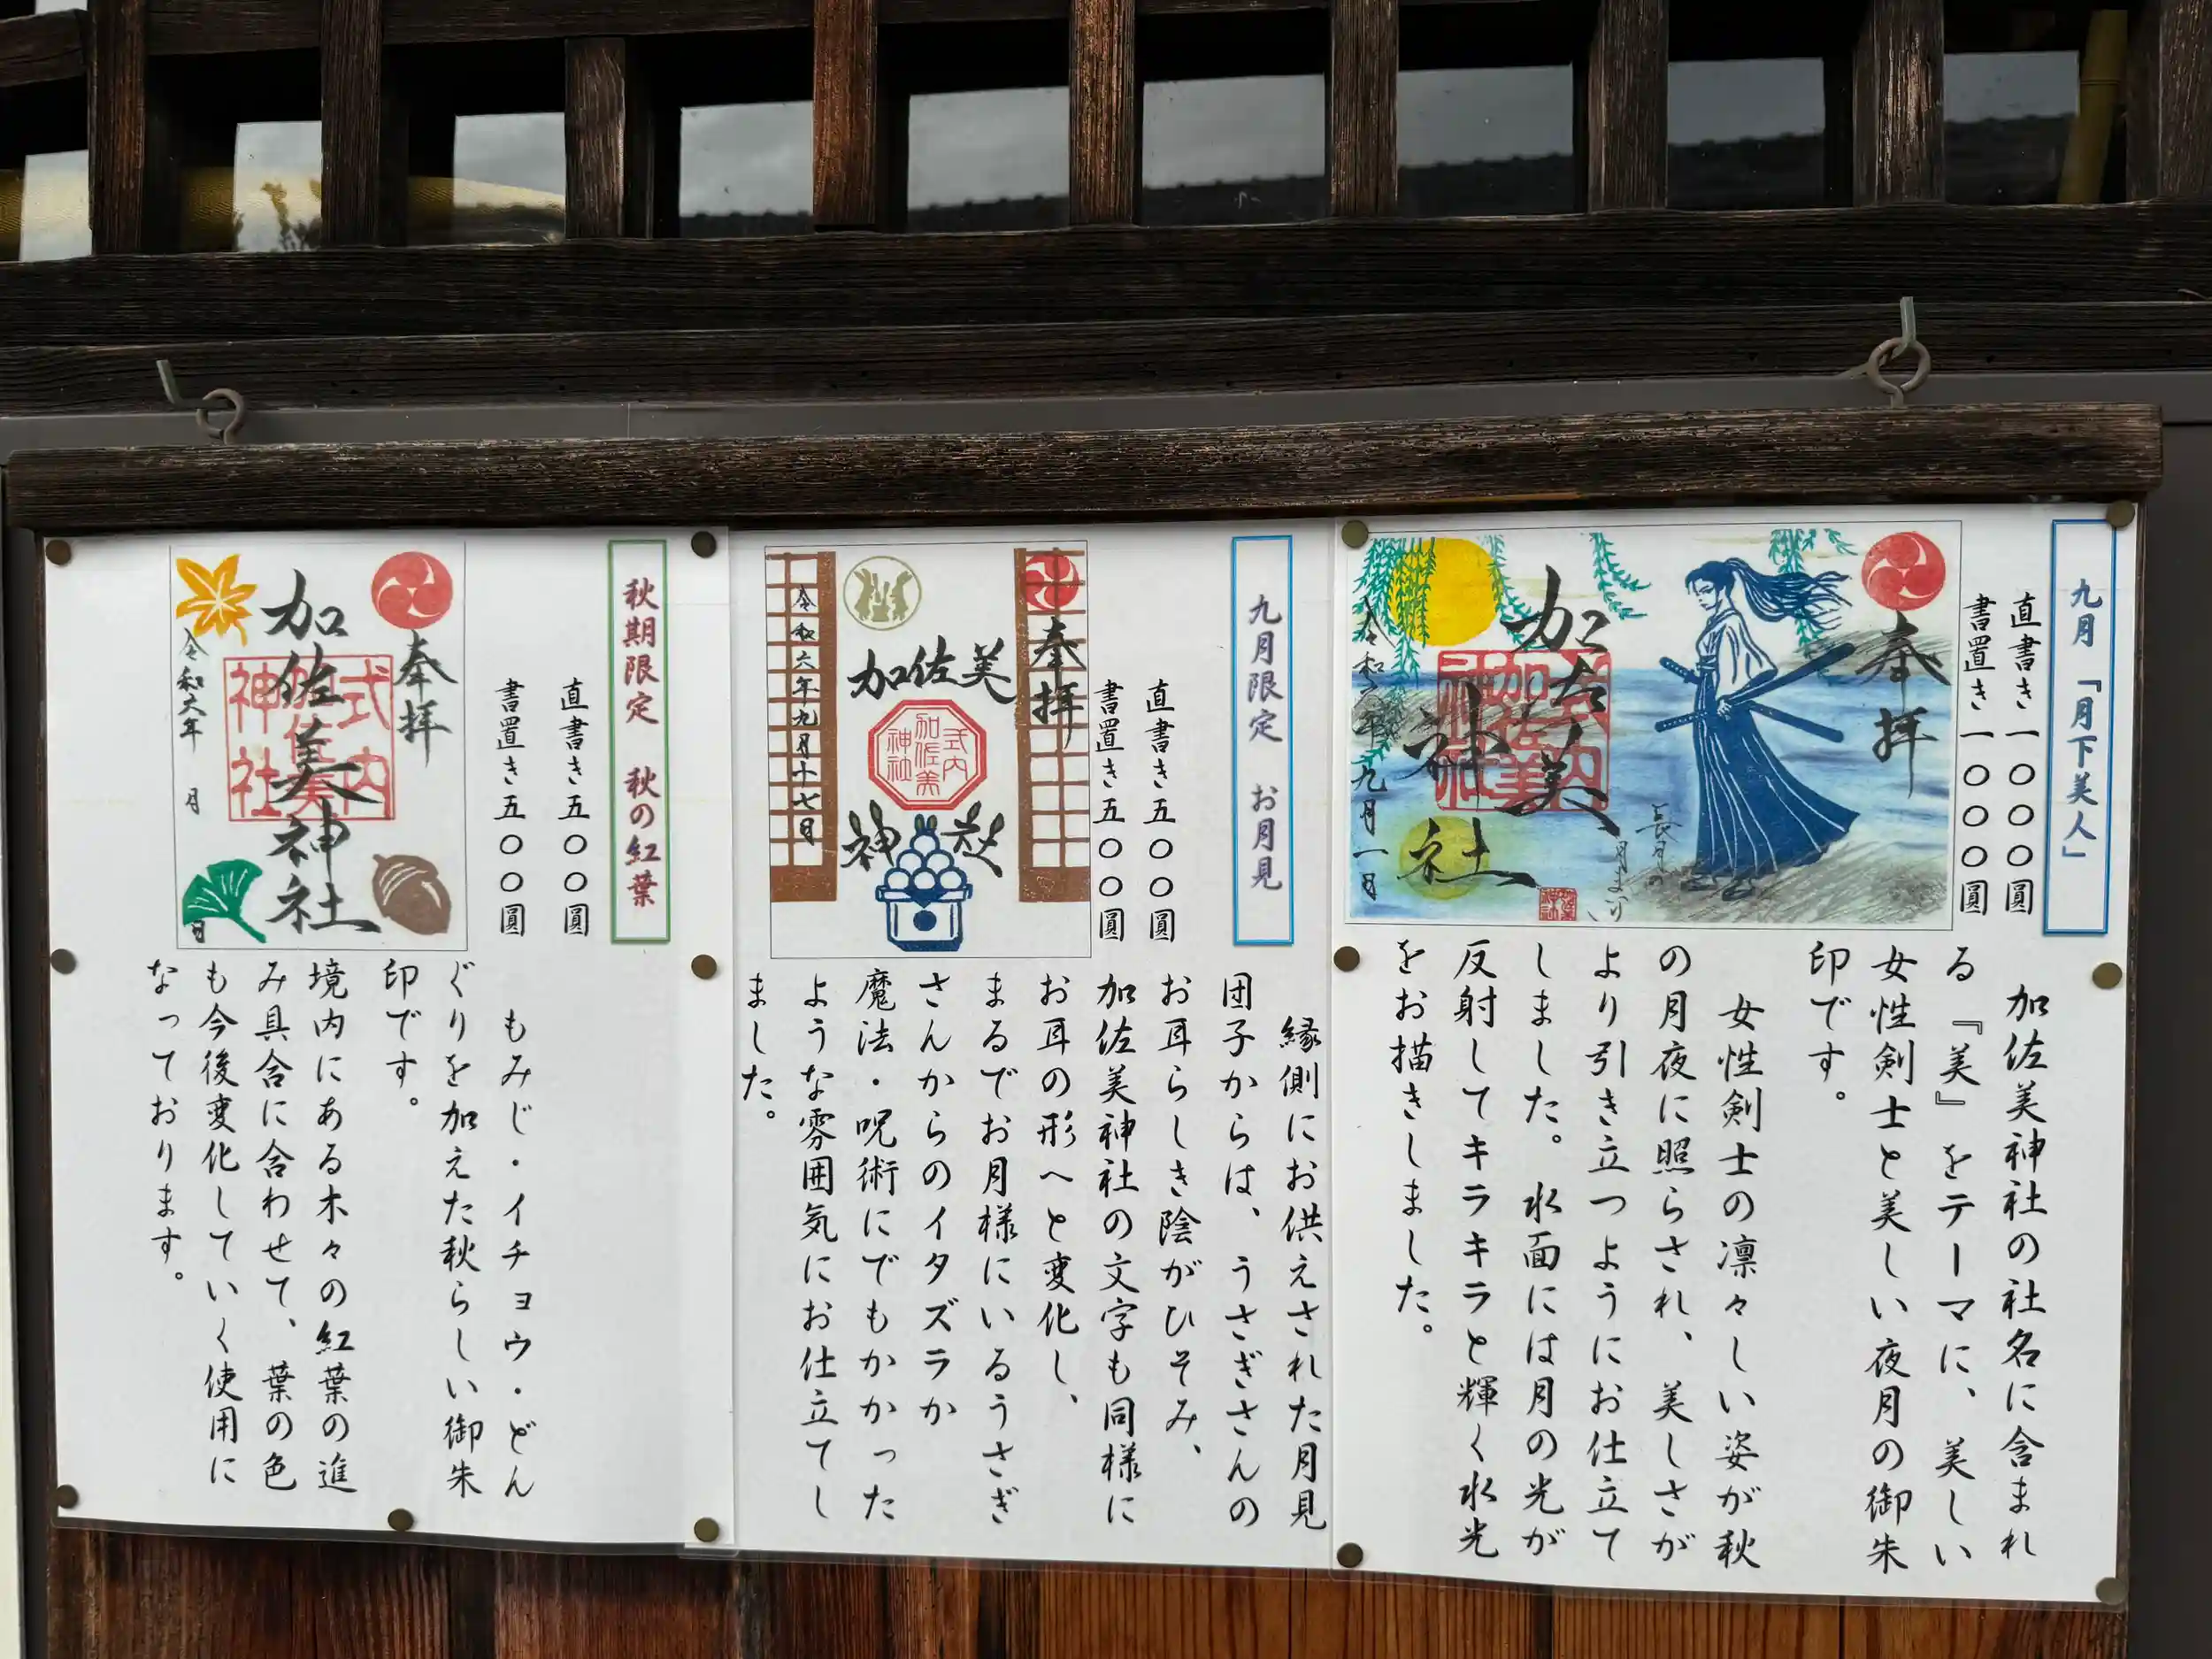 九月「月下美人」
直書き一〇〇〇圓
書置き一〇〇〇圓
奉拝
加佐美
神社
式内
加佐美
神社
長月の
月まいり
九月一日
加佐美神社の社名に含まれ
る『美』をテーマに、美しい
女性剣士と美しい夜月の御朱
印です。
女性剣士の凛々しい姿が秋
の月夜に照らされ、美しさが
より引き立つようにお仕立て
しました。水面には月の光が
反射してキラキラと輝く水光
をお描きしました。
九月限定 お月見
直書き五〇〇圓
書置き五〇〇圓
奉拝
加佐美
神社
式内
加佐美
神社
令和六年九月十七日
縁側にお供えされた月見
団子からは、うさぎさんの
お耳らしき陰がひそみ、
加佐美神社の文字も同様に
お耳の形へと変化し、
まるでお月様にいるうさぎ
さんからのイタズラか
魔法・呪術にでもかかった
ような雰囲気にお仕立てし
ました。
秋期限定 秋の紅葉
直書き五〇〇圓
書置き五〇〇圓
奉拝
加佐美神社
式内
加佐美
神社
令和六年 月 日
もみじ・イチョウ・どん
ぐりを加えた秋らしい御朱
印です。
境内にある木々の紅葉の進
み具合に合わせて、葉の色
も今後変化していく使用に
なっております。